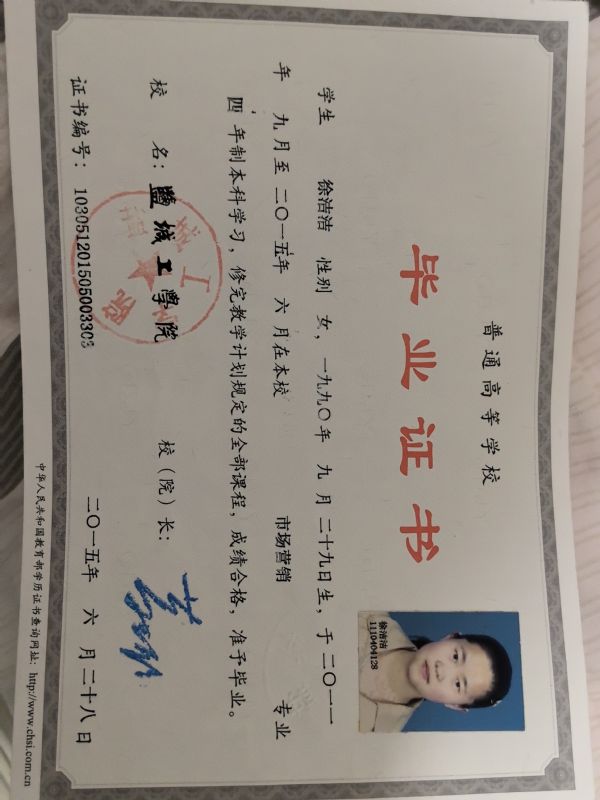 普通高等学校
毕业证书
徐洁洁
1110404128
学生 徐洁洁 性别 女，一九九〇年 九 月 二十九日生，于二〇一一
年 九 月至 二〇一五年 六 月在本校 市场营销 专业
四 年制本科学习，修完教学计划规定的全部课程，成绩合格，准予毕业。
校 名：鹽城工學院 校（院）长：
证书编号：103051201505003303 二〇一五年 六 月 二十八 日
中华人民共和国教育部学历证书查询网址：http://www.chsi.com.cn